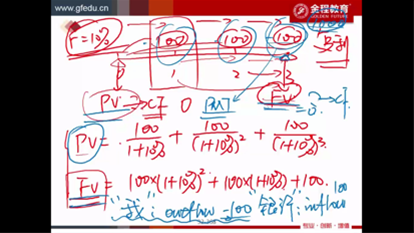 www.gfedu.cn
金程教育
GOLDEN FUTURE
r=10%
100 100 100
1 2 3
PV → CF 0 PMT FV → CF
PV = 100/(1+10%) + 100/(1+10%)² + 100/(1+10%)³
FV = 100×(1+10%)² + 100×(1+10%) + 100.
"我": outflow -100 "银行": inflow 100
专业·创新·增值